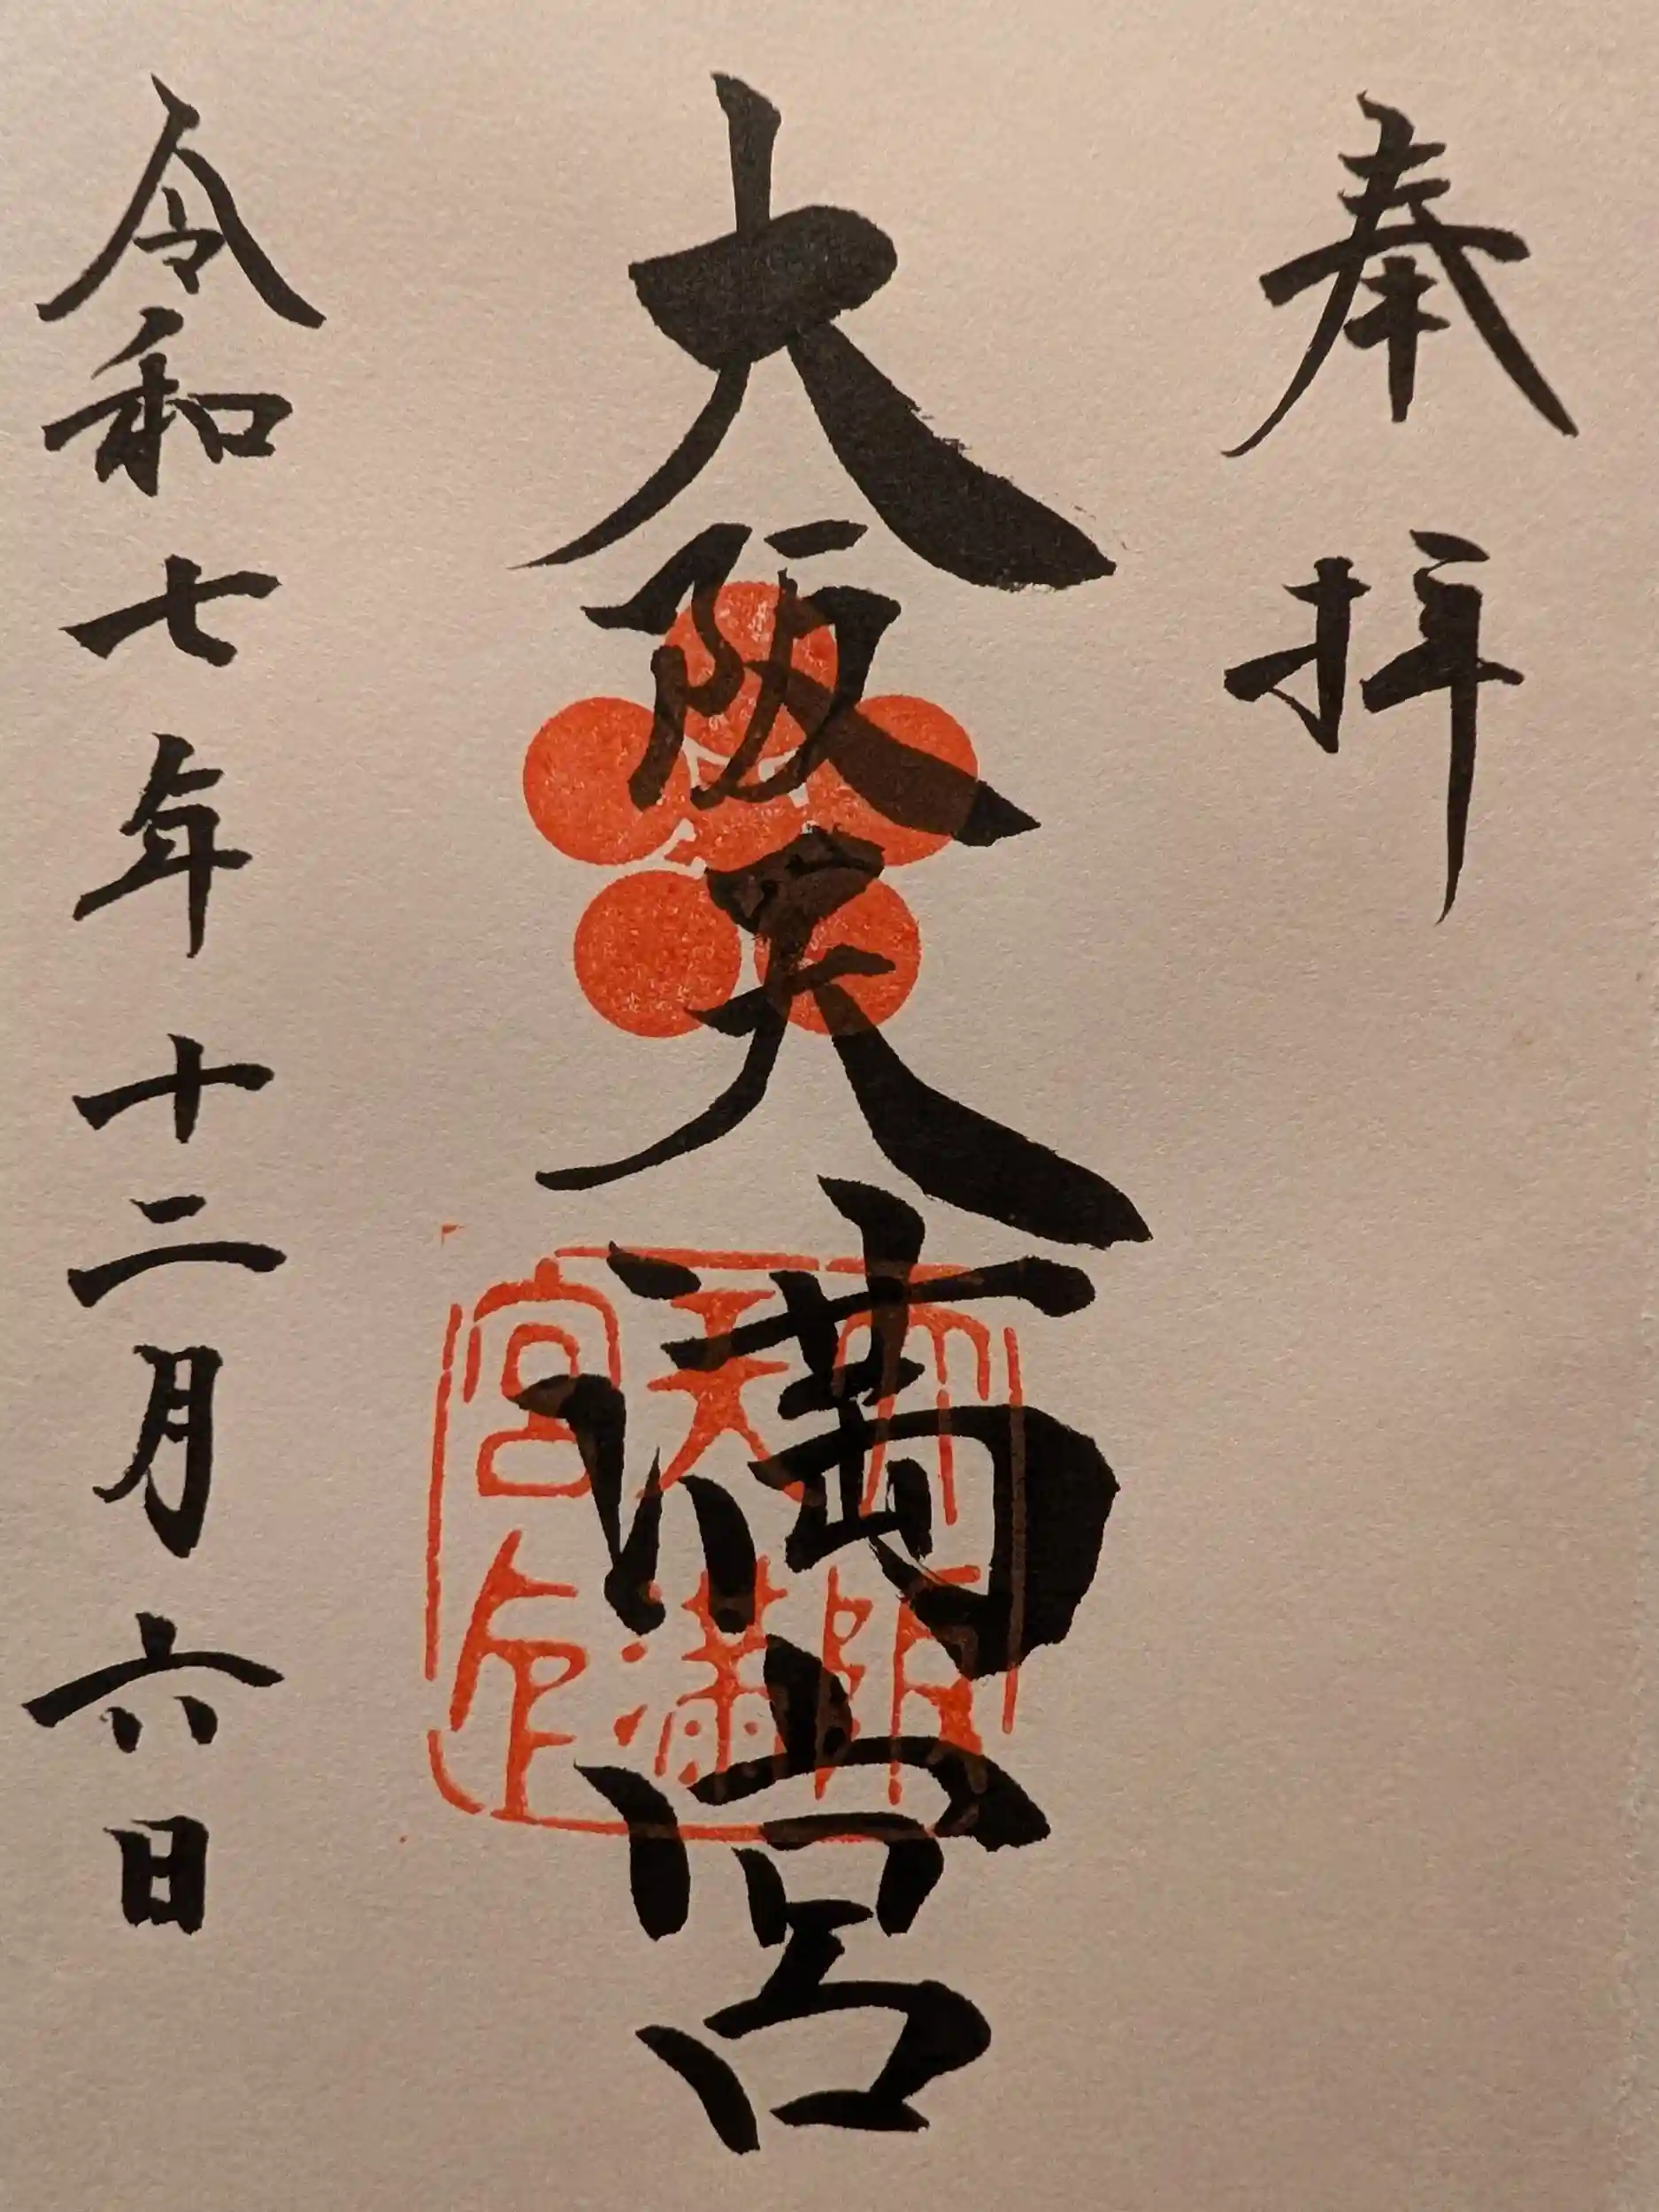 奉拝
大阪天満宮
令和七年十二月六日
大阪
天満
宮印